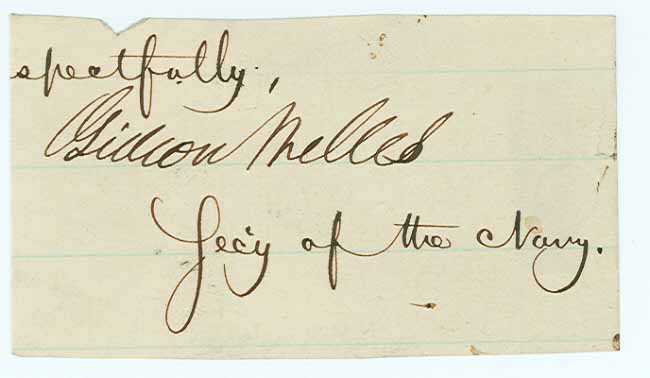 spectfully,
Gideon Welles
Sec'y of the Navy.